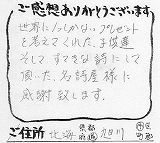 ご感想ありがとうございます
世界に1つしかないプレゼント
を考えてくれた、子供達
そしてすてきな詩にして
頂いた、名詩屋様に
感謝致します。
ご住所 北海 都道府県 旭川 市区町村